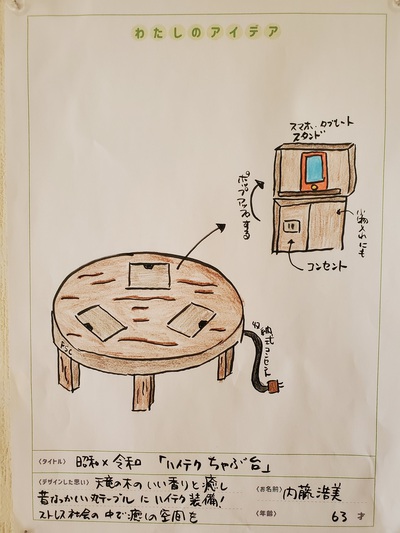 わたしのアイデア
スマホ、タブレット
スタンド
ポップアップする
小物入れにも
コンセント
収納式コンセント
〈タイトル〉 昭和×令和 「ハイテクちゃぶ台」
〈デザインした思い〉 天竜の木のいい香りと癒し
昔なつかしい丸テーブルにハイテク装備!
ストレス社会の中で癒しの空間を
〈お名前〉 内藤 浩美
〈年齢〉 63 才